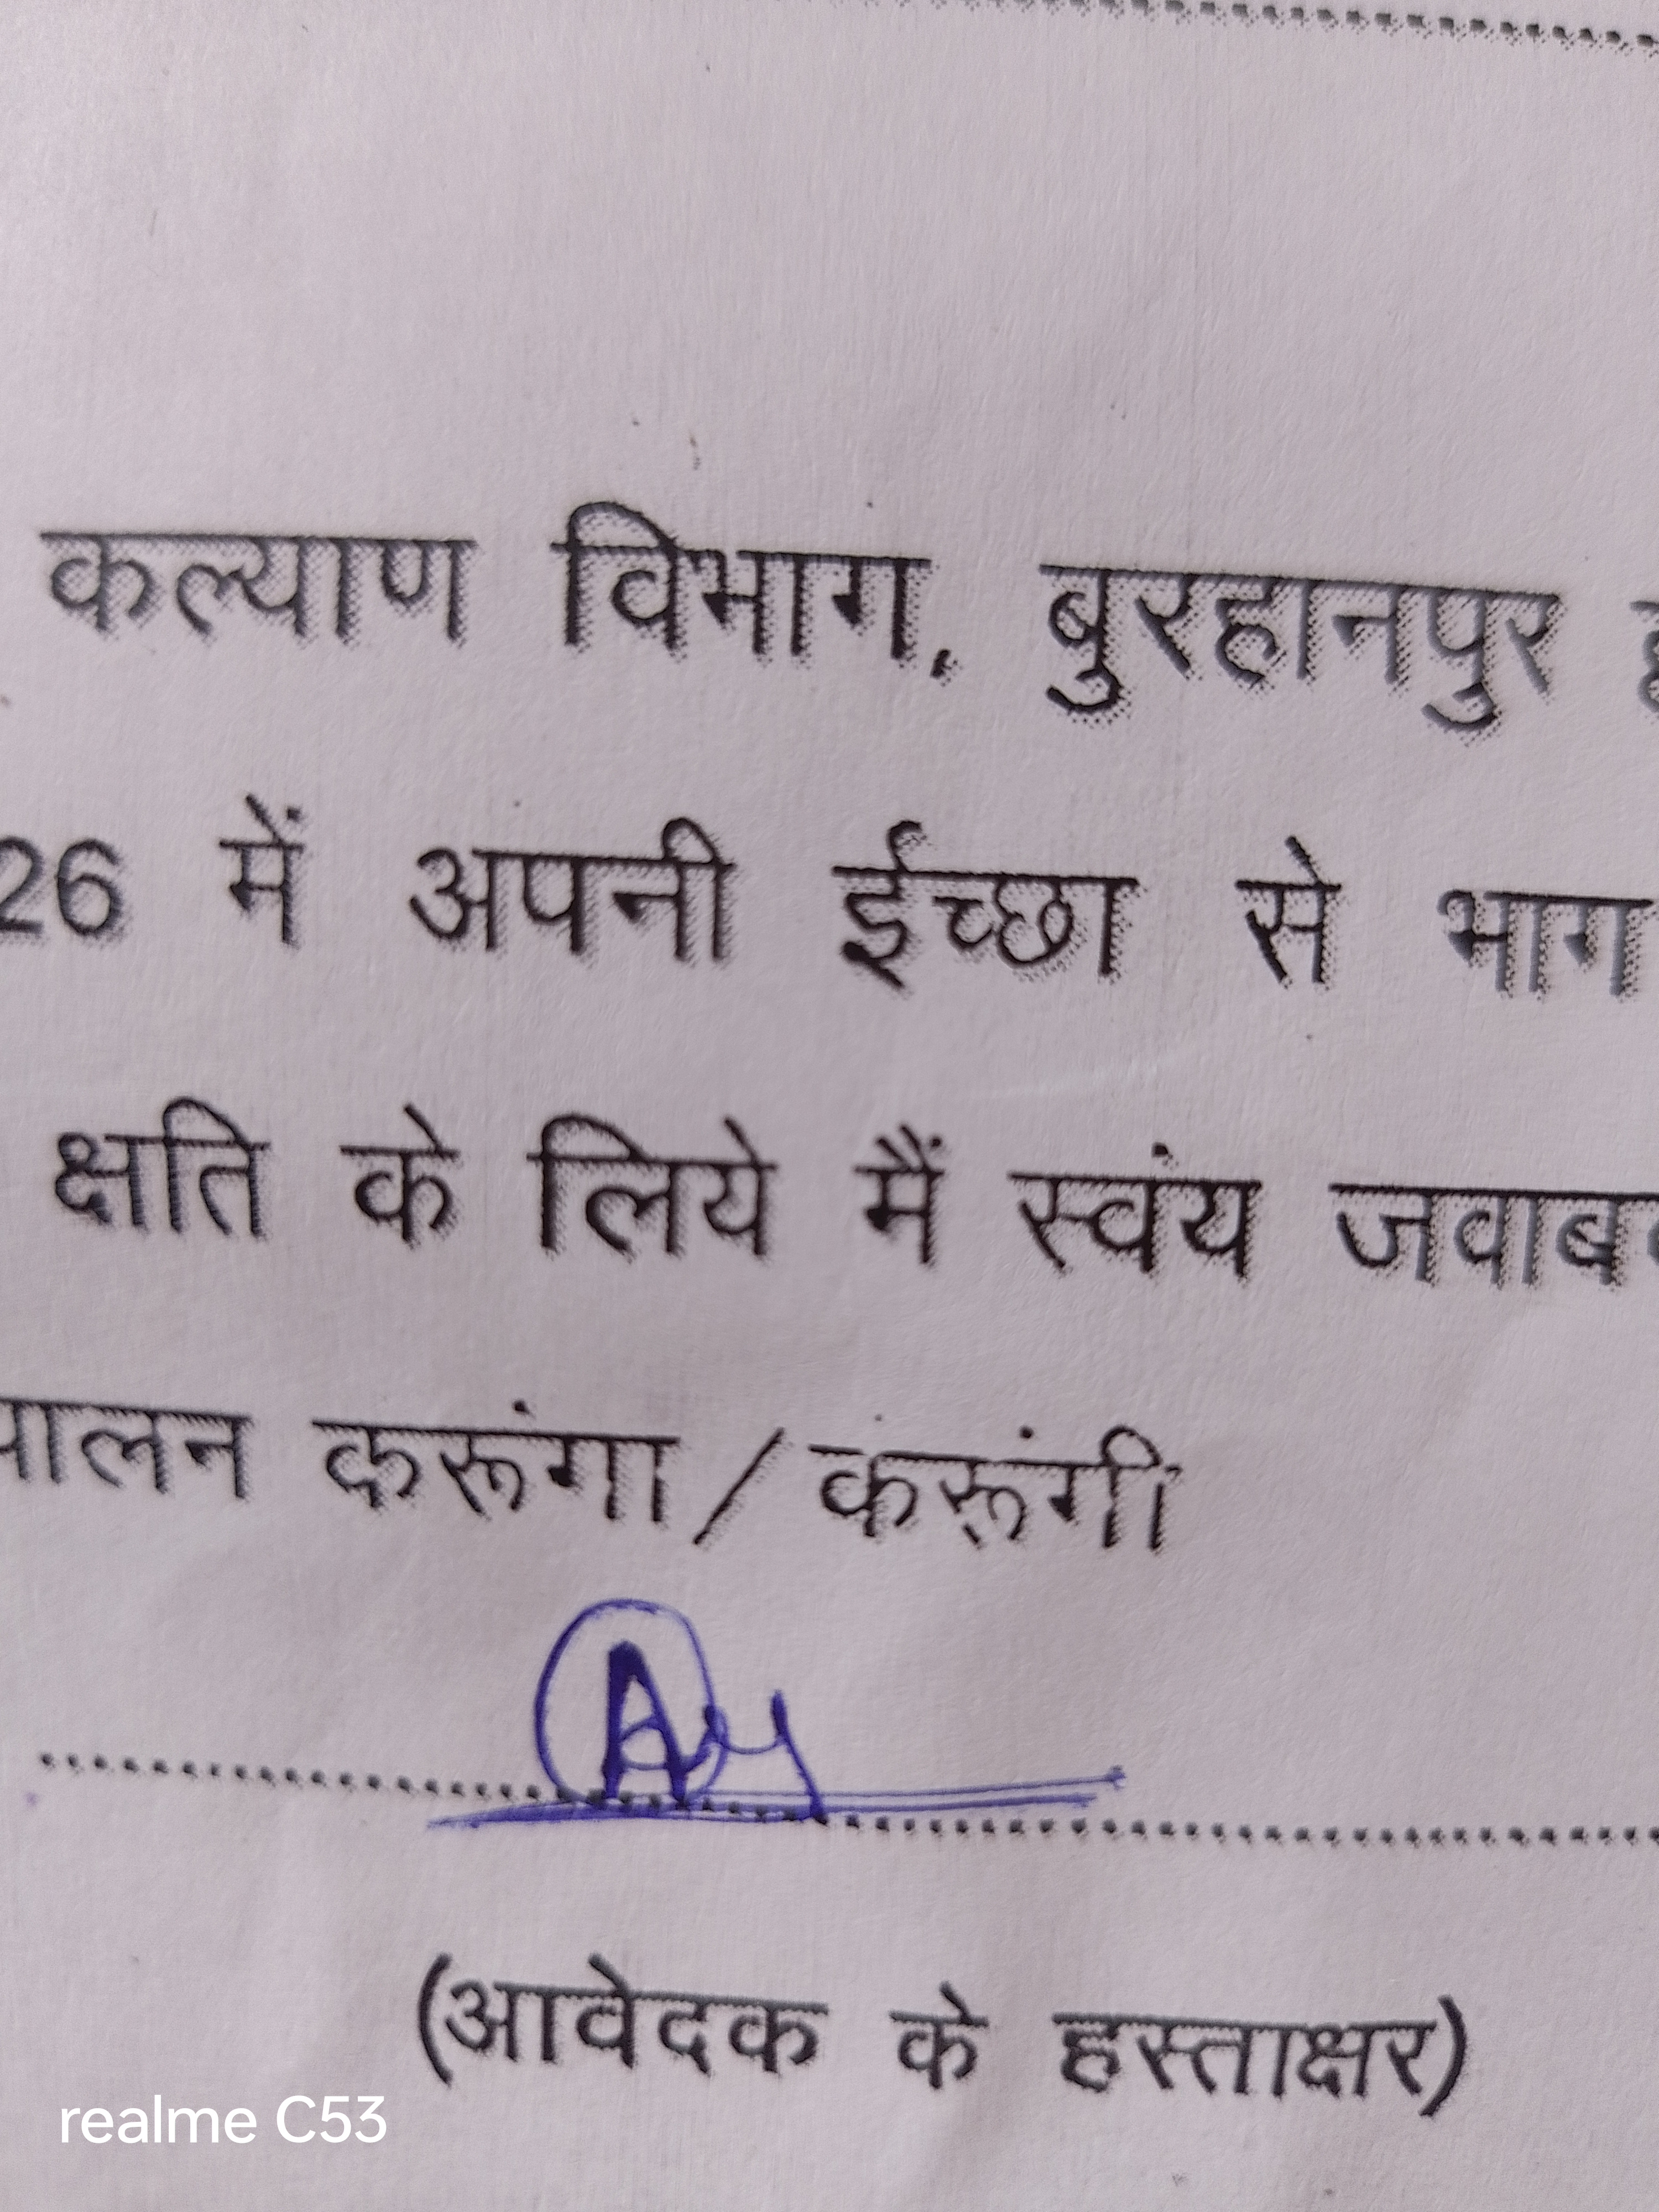 कल्याण विभाग, बुरहानपुर
26 में अपनी ईच्छा से भाग
क्षति के लिये मैं स्वंय
पालन करूंगा/करूंगी
(आवेदक के हस्ताक्षर)
realme C53